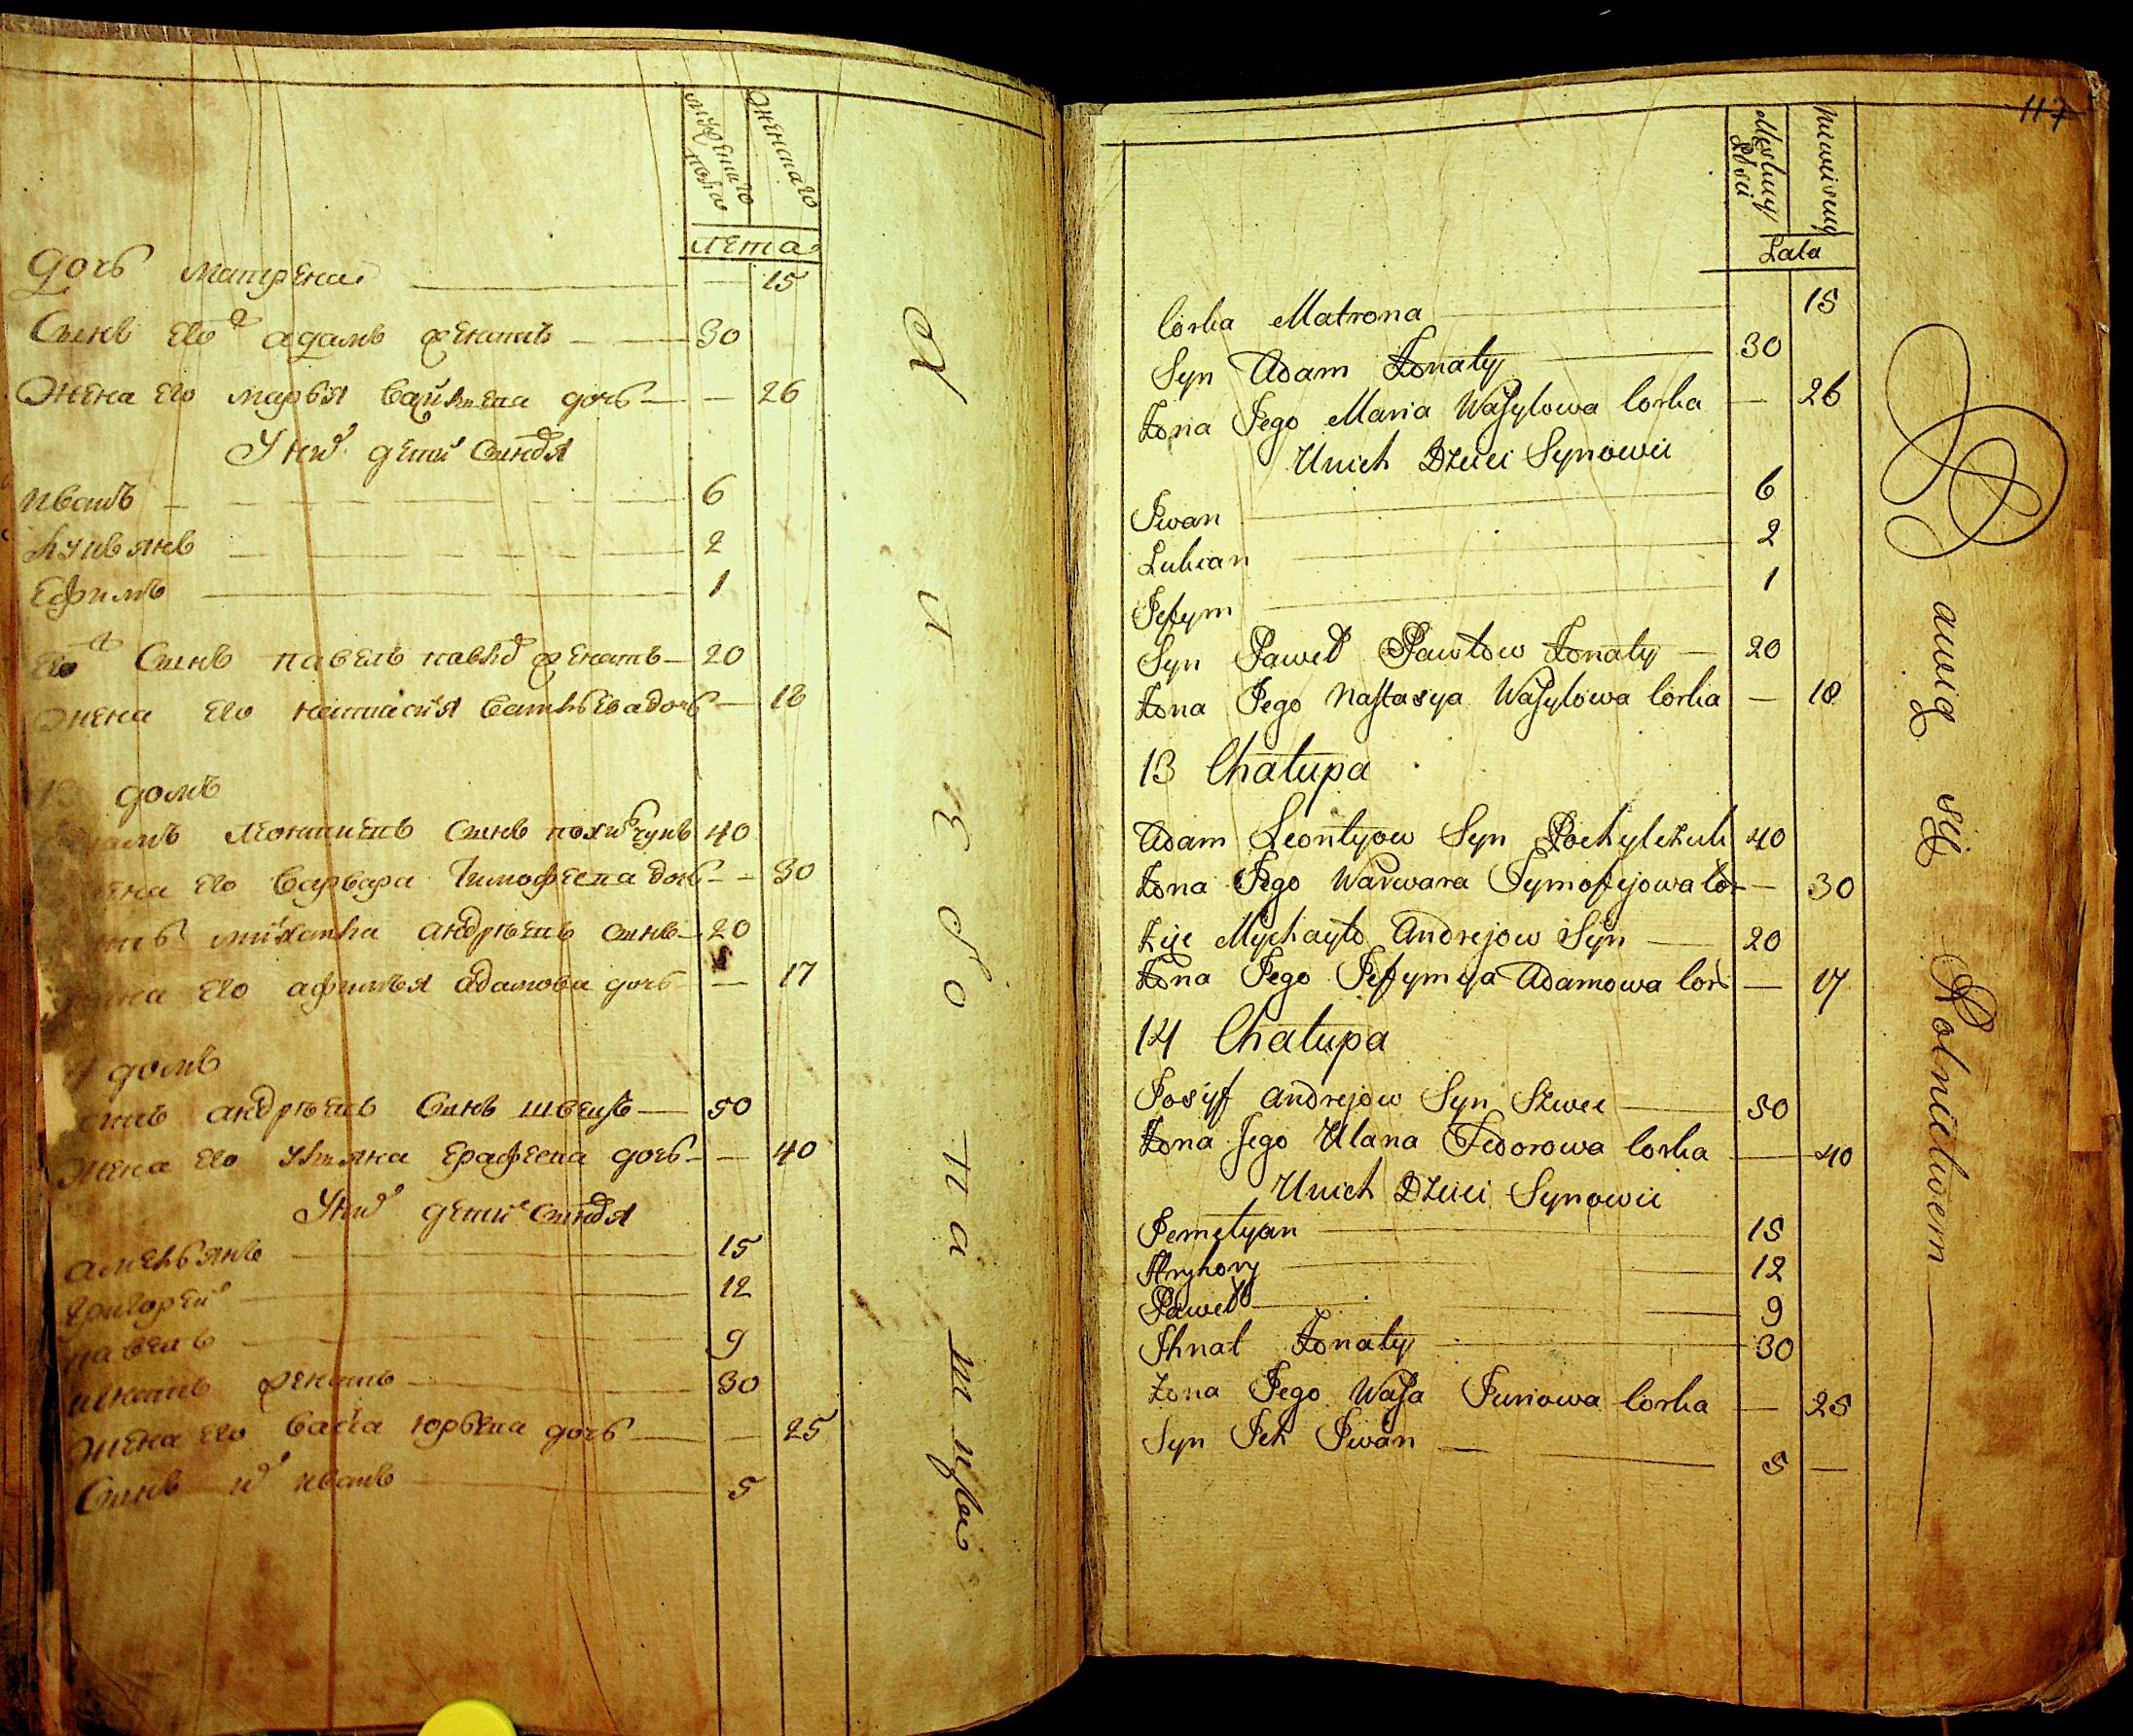 мужеска пола
женскаго
лета
дочь матрена 15
Сынъ его адамъ женатъ 30
Жена его марья дочь 26
У них дети сыновя
иванъ 6
лукьянъ 2
Ефимъ 1
его Сынъ павелъ женатъ 20
Жена его настасия дочь 18
13 домъ
Леонтиевъ Сынъ 40
его варвара Тимофеева дочь 30
михаила андреевъ сынъ 20
его афимья адамова дочь 17
домъ
андреевъ Сынъ швецъ 50
Жена его ульяна дочь 40
У них дети сыновя
амельянъ 15
григорей 12
павелъ 9
игнатъ женатъ 30
Жена его васса юрьева дочь 25
Сынъ их иванъ 5
117
Męskiey Płci
Niewiesciey
Lata
Corka Matrona 15
Syn Adam Żonaty 30
Żona Jego Maria Wasylowa Corka — 26
Unich Dzieci Synowie
Iwan 6
Lukian 2
Jefym 1
Syn Paweł Pawłow Żonaty — 20
Żona Jego Nastasya Wasylowa Corka — 18
13 Chałupa
Adam Leontyow Syn Pochylczuk 40
Żona Jego Warwara Tymofejowa Cor — 30
Zięc Mychayło Andrejow Syn — 20
Żona Jego Jefymija Adamowa Cor — 17
14 Chałupa
Josyf Andrejow Syn Szwec 50
Żona Jego Ulana Fedorowa Corka — 40
Unich Dzieci Synowie
Jemelyan 15
Hryhory 12
Paweł 9
Ihnat Żonaty 30
Żona Jego Wasa Juriowa Corka — 25
Syn Ich Iwan — 5 —
Bawią się Rolnictwem